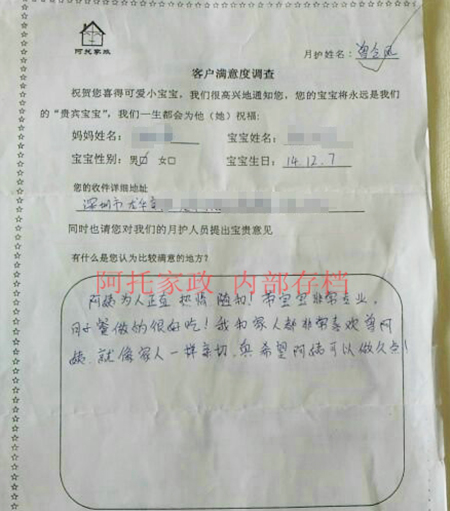 阿托家政
月护姓名：曾会凤
客户满意度调查
祝贺您喜得可爱小宝宝，我们很高兴地通知您，您的宝宝将永远是我们
的“贵宾宝宝”，我们一生都会为他（她）祝福：
妈妈姓名：
宝宝姓名：
宝宝性别：男☑ 女□
宝宝生日：14.12.7
您的收件详细地址
深圳市龙华
同时也请您对我们的月护人员提出宝贵意见
有什么是您认为比较满意的地方？
阿托家政 内部存档
阿姨为人正直 热情 随和！带宝宝非常专业，
月子餐做的很好吃！我和家人都非常喜欢曾阿
姨，就像家人一样亲切，真希望阿姨可以做久点！